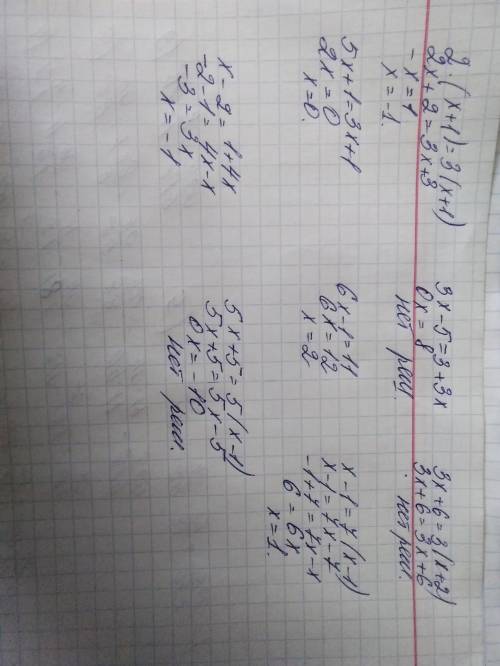 2·(x+1)=3(x+1)
2x+2=3x+3
-x=1
x=-1
3x-5=3+3x
0x=8
нет реш
3x+6=3(x+2)
3x+6=3x+6
нет реш.
5x+1=3x+1
2x=0
x=0.
6x-1=11
6x=12
x=2
x-1=7(x-1)
x-1=7x-7
-1+7=7x-x
6=6x
x=1.
x-2=1+4x
-2-1=4x-x
-3=3x
x=-1
5x+5=5(x-1)
5x+5=5x-5
0x=-10
нет реш.